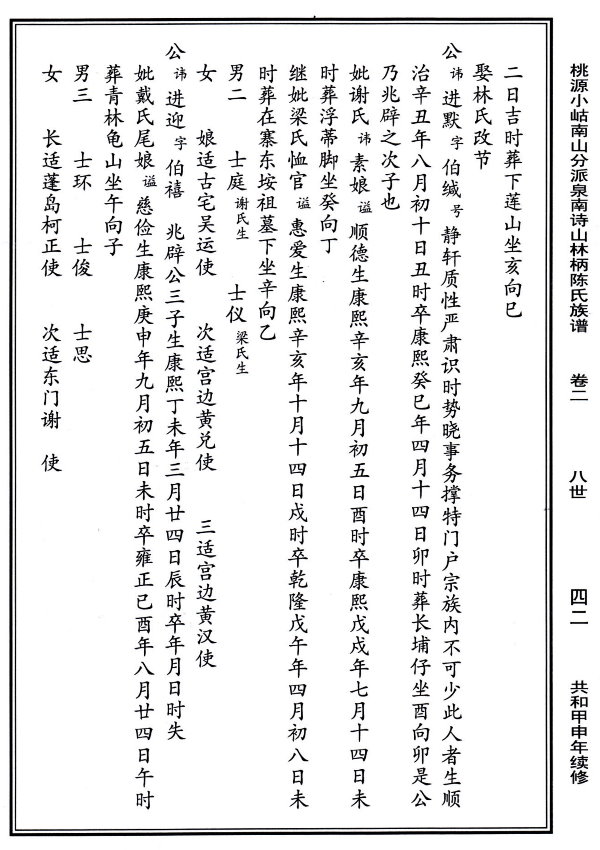 桃源小岵南山分派泉南诗山林柄陈氏族谱 卷二 八世 四二 共和甲申年续修
二日吉时葬下莲山坐亥向巳
娶林氏改节
公 讳 进默 字 伯缄 号 静轩质性严肃识时势晓事务撑特门户宗族内不可少此人者生顺
治辛丑年八月初十日丑时卒康熙癸巳年四月十四日卯时葬长埔仔坐酉向卯是公
乃兆辟之次子也
妣谢氏 讳 素娘 谥 顺德生康熙辛亥年九月初五日酉时卒康熙戊戌年七月十四日未
时葬浮蒂脚坐癸向丁
继妣梁氏恤官 谥 惠爱生康熙辛亥年十月十四日戍时卒乾隆戊午年四月初八日未
时葬在寨东垵祖墓下坐辛向乙
男二 士庭 谢氏生 士仪 梁氏生
女 娘适古宅吴运使 次适宫边黄兑使 三适宫边黄汉使
公 讳 进迎 字 伯禧 兆辟公三子生康熙丁未年三月廿四日辰时卒年月日时失
妣戴氏尾娘 谥 慈俭生康熙庚申年九月初五日未时卒雍正己酉年八月廿四日午时
葬青林龟山坐午向子
男三 士环 士俊 士思
女 长适蓬岛柯正使 次适东门谢 使